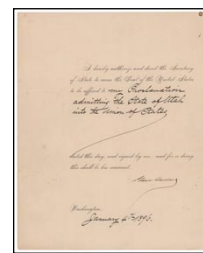 I hereby authorize and direct the Secretary
of State to cause the Seal of the United States
to be affixed to my Proclamation
admitting the State of Utah
into the Union of States,
dated this day, and signed by me: and for so doing
this shall be his warrant.
Washington,
January 4th 1896.